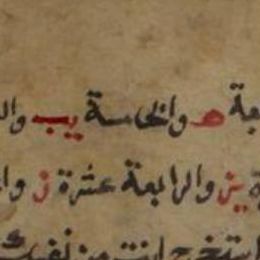 ـعة ه والخامسة يب والـ
ـة يز والرابعة عشرة ز وا
استخرج انت من نفسك